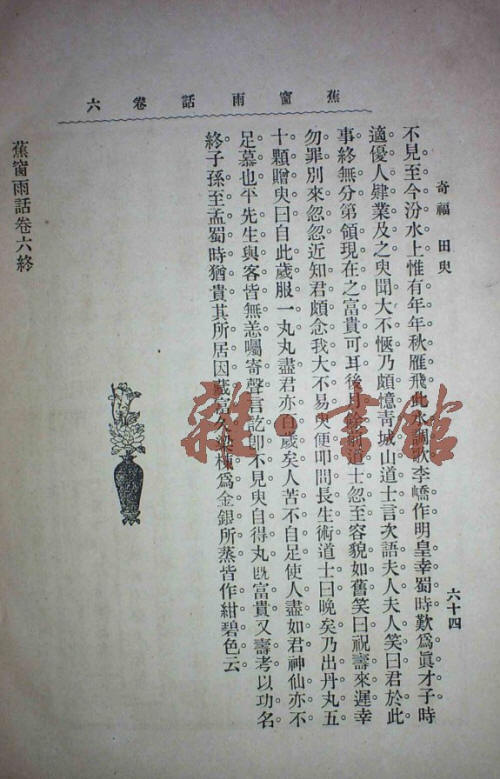 蕉窗雨話卷六
奇福 田叟 六十四
不見至今汾水上惟有年年秋雁飛此水調歌李嶠作明皇幸蜀時歎爲眞才子時
適優人肄業及之叟聞大不愜乃頗憶靑城山道士言次語夫人夫人笑曰君於此
事終無分第領現在之富貴可耳後月道士忽至容貌如舊笑曰祝壽來遲幸
勿罪別來忽忽近知君頗念我大不易叟便叩問長生術道士曰晚矣乃出丹丸五
十顆贈叟曰自此歲服一丸丸盡君亦百歲矣人苦不自足使人盡如君神仙亦不
足慕也平先生與客皆無恙囑寄聲言訖卽不見叟自得丸旣富貴又壽考以功名
終子孫至孟蜀時猶貴其所居因藏富久梁棟爲金銀所蒸皆作紺碧色云
蕉窗雨話卷六終
雜·書館